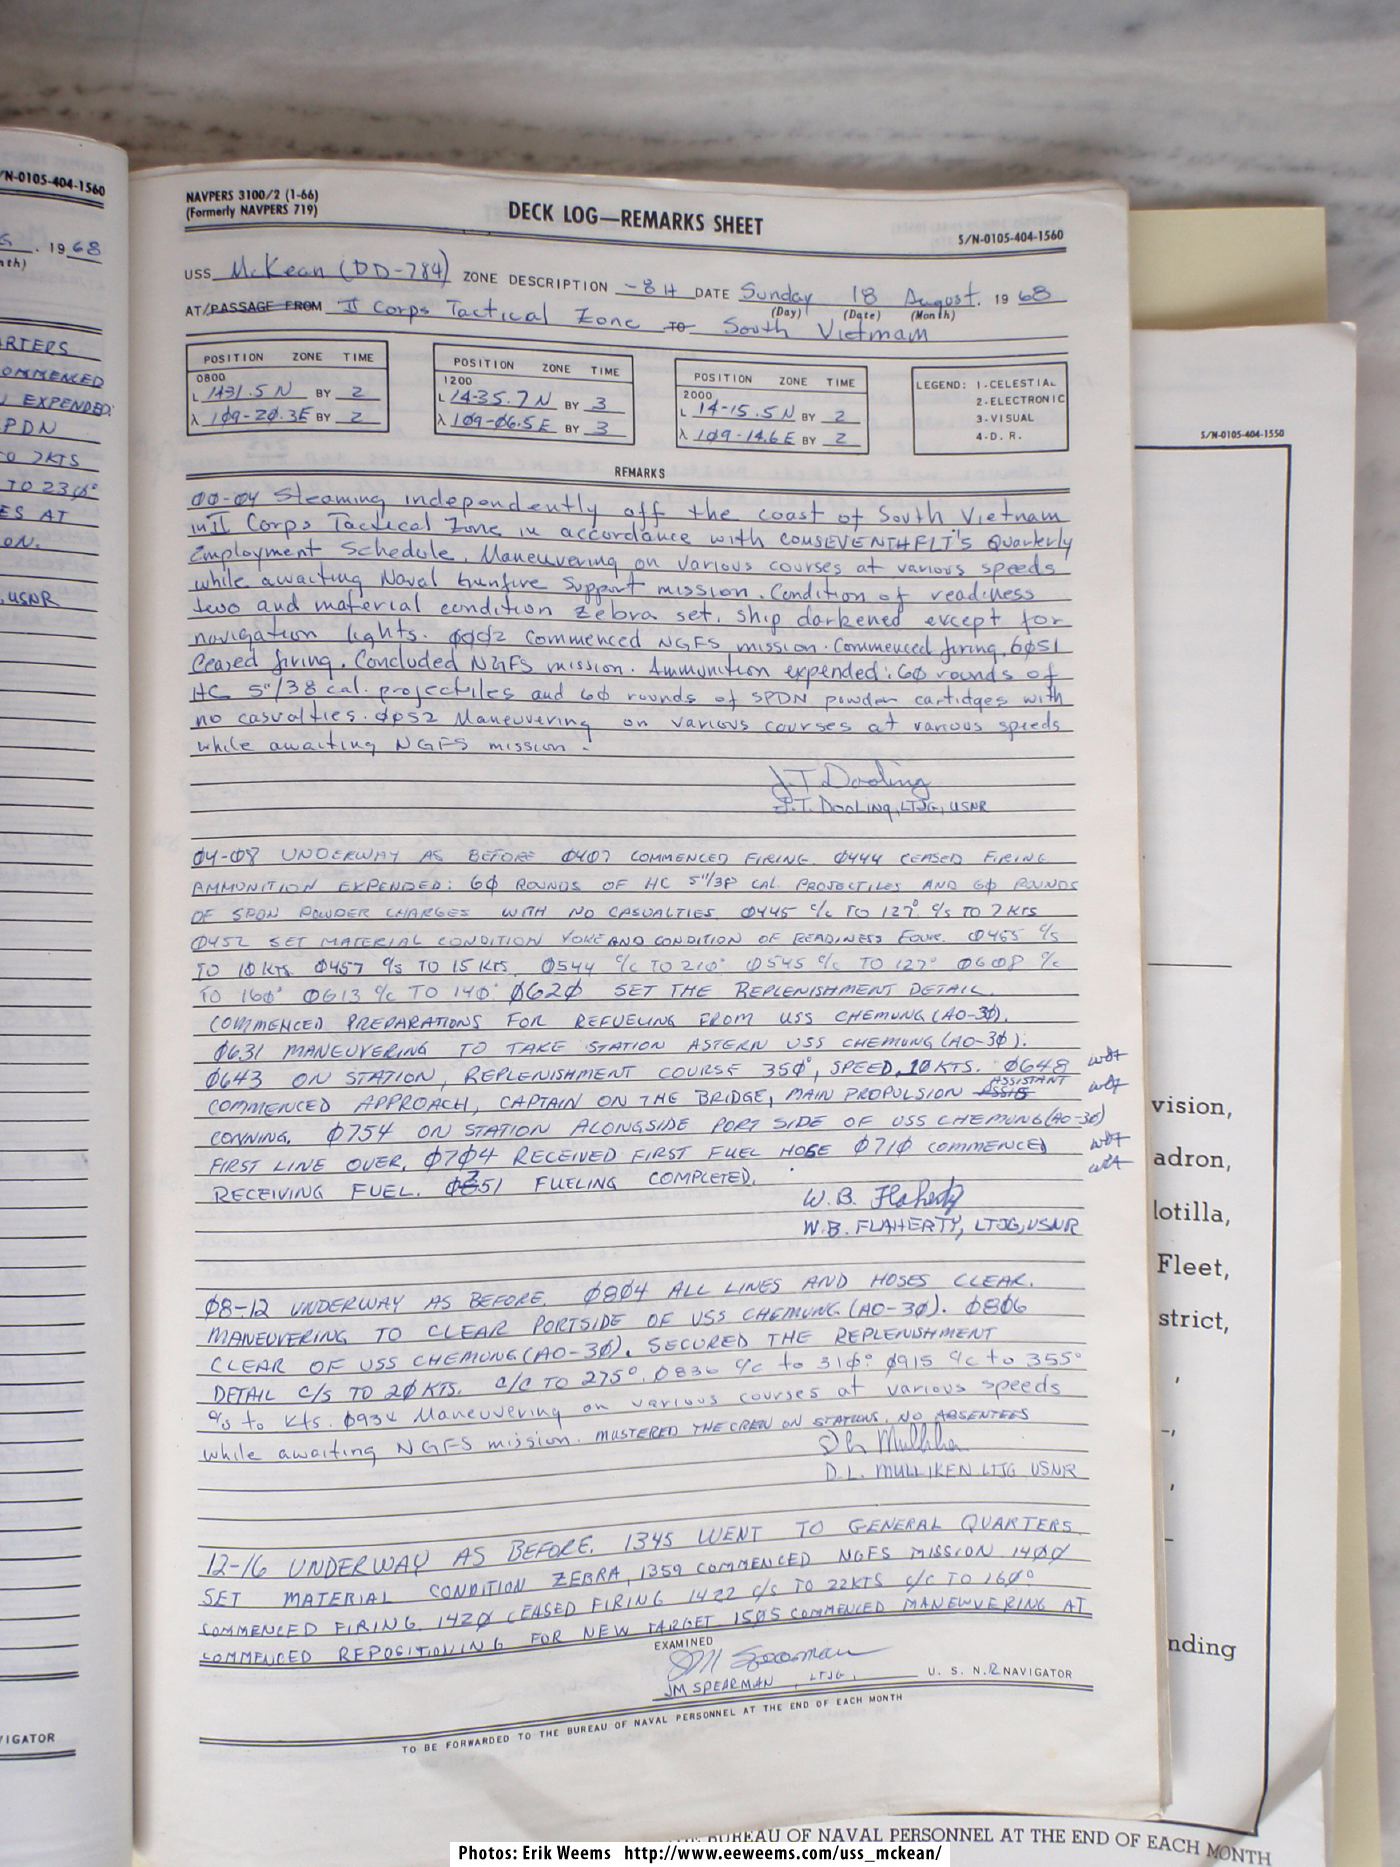 /N-0105-404-1560
. 19 68
nth)
ARTERS
OMMENCED
EXPENDED:
PDN
TO 7KTS
TO 23ø°
ES AT
ON.
, USNR
VIGATOR
NAVPERS 3100/2 (1-66)
(Formerly NAVPERS 719)
DECK LOG—REMARKS SHEET
S/N-0105-404-1560
USS McKean (DD-784) ZONE DESCRIPTION -8H DATE Sunday 18 August. 19 68
(Day) (Date) (Month)
AT/PASSAGE FROM II Corps Tactical Zone TO South Vietnam
POSITION ZONE TIME
0800
L 1431.5 N BY 2
λ 1ø9-2ø.3E BY 2
POSITION ZONE TIME
1200
L 14-35.7 N BY 3
λ 1ø9-ø6.5E BY 3
POSITION ZONE TIME
2000
L 14-15.5N BY 2
λ 1ø9-14.6E BY 2
LEGEND: 1-CELESTIAL
2-ELECTRONIC
3-VISUAL
4-D. R.
REMARKS
øø-ø4 Steaming independently off the coast of South Vietnam
in II Corps Tactical Zone in accordance with COMSEVENTHFLT'S Quarterly
Employment Schedule. Maneuvering on various courses at various speeds
while awaiting Naval Gunfire Support mission. Condition of readiness
two and material condition Zebra set. Ship darkened except for
navigation lights. øøø2 Commenced NGFS mission. Commenced firing. øø51
Ceased firing. Concluded NGFS mission. Ammunition expended: 6ø rounds of
HC 5"/38 cal. projectiles and 6ø rounds of SPDN powder cartidges with
no casualties. øø52 Maneuvering on various courses at various speeds
while awaiting NGFS mission.
J.T. Dooling
J.T. DOOLING, LTJG, USNR
ø4-ø8 UNDERWAY AS BEFORE ø4ø7 COMMENCED FIRING. ø444 CEASED FIRING
AMMUNITION EXPENDED: 6ø ROUNDS OF HC 5"/38 CAL. PROJECTILES AND 6ø ROUNDS
OF SPDN POWDER CHARGES WITH NO CASUALTIES. ø445 C/C TO 127° C/S TO 7 KTS
ø452 SET MATERIAL CONDITION YOKE AND CONDITION OF READINESS FOUR. ø455 C/S
TO 1ø KTS. ø457 C/S TO 15 KTS. ø544 C/C TO 21ø° ø545 C/C TO 127° ø6ø8 C/C
TO 16ø° ø613 C/C TO 14ø° ø62ø SET THE REPLENISHMENT DETAIL.
COMMENCED PREPARATIONS FOR REFUELING FROM USS CHEMUNG (AO-3ø).
ø631 MANEUVERING TO TAKE STATION ASTERN USS CHEMUNG (AO-3ø).
ø643 ON STATION, REPLENISHMENT COURSE 35ø°, SPEED 1ø KTS. ø648
COMMENCED APPROACH, CAPTAIN ON THE BRIDGE, MAIN PROPULSION ASSISTANT
CONNING. ø754 ON STATION ALONGSIDE PORT SIDE OF USS CHEMUNG (AO-3ø)
FIRST LINE OVER. ø7ø4 RECEIVED FIRST FUEL HOSE ø71ø COMMENCED
RECEIVING FUEL. ø751 FUELING COMPLETED.
W.B. Flaherty
W.B. FLAHERTY, LTJG, USNR
ø8-12 UNDERWAY AS BEFORE. ø8ø4 ALL LINES AND HOSES CLEAR.
MANEUVERING TO CLEAR PORTSIDE OF USS CHEMUNG (AO-3ø). ø8ø6
CLEAR OF USS CHEMUNG (AO-3ø). SECURED THE REPLENISHMENT
DETAIL C/S TO 2ø KTS. C/C TO 275°. ø836 C/C to 31ø° ø915 C/C to 355°
C/S to kts. ø934 Maneuvering on various courses at various speeds
while awaiting NGFS mission. MUSTERED THE CREW ON STATIONS. NO ABSENTEES
D L Mulliken
D.L. MULLIKEN LTJG USNR
12-16 UNDERWAY AS BEFORE. 1345 WENT TO GENERAL QUARTERS
SET MATERIAL CONDITION ZEBRA, 1359 COMMENCED NGFS MISSION 14øø
COMMENCED FIRING. 142ø CEASED FIRING 1422 C/S TO 22KTS C/C TO 16ø°
COMMENCED REPOSITIONING FOR NEW TARGET. 15ø5 COMMENCED MANEUVERING AT
EXAMINED
JM Spearman
JM SPEARMAN, LTJG, U. S. N.R NAVIGATOR
TO BE FORWARDED TO THE BUREAU OF NAVAL PERSONNEL AT THE END OF EACH MONTH
S/N-0105-404-1550
vision,
adron,
lotilla,
Fleet,
strict,
nding
BUREAU OF NAVAL PERSONNEL AT THE END OF EACH MONTH
Photos: Erik Weems http://www.eeweems.com/uss_mckean/